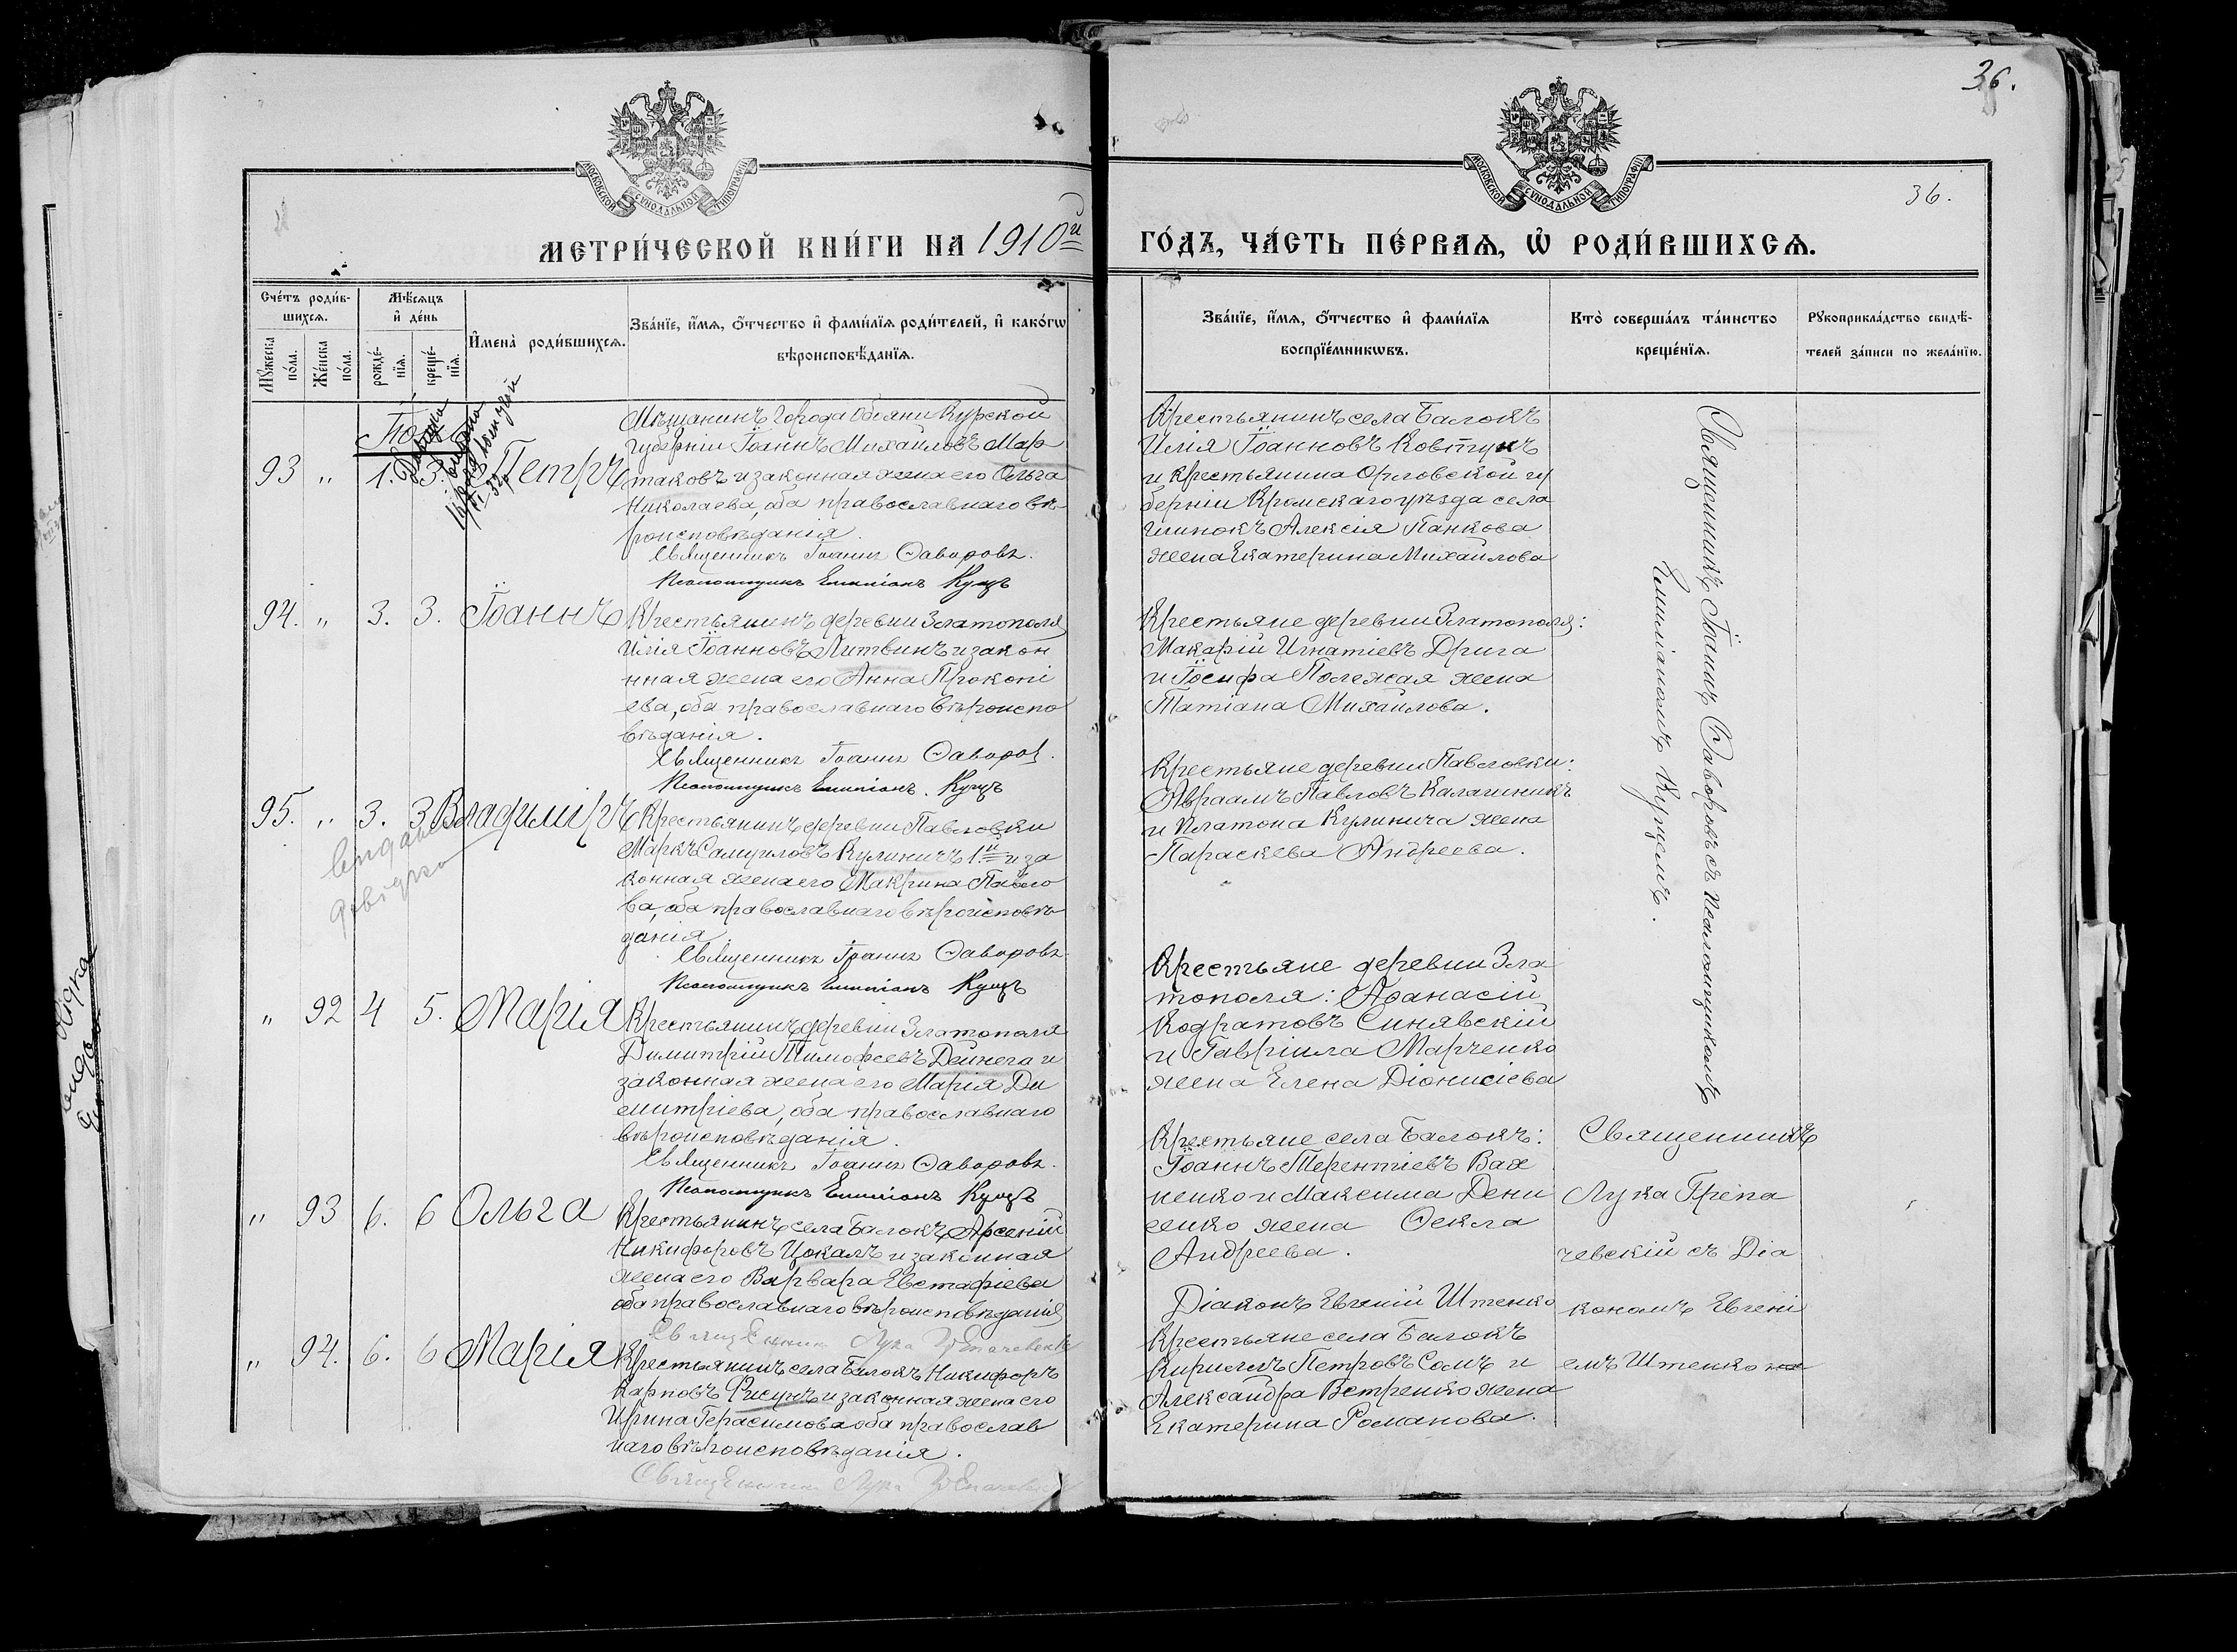 36.
МОСКОВСКОЙ СѴНОДАЛЬНОЙ ТИПОГРАФІИ
МОСКОВСКОЙ СѴНОДАЛЬНОЙ ТИПОГРАФІИ
36.
МЕТРИ́ЧЕСКОЙ КНИ́ГИ НА 1910й
ГО́ДЪ, ЧА́СТЬ ПЕ́РВАѦ, Ѡ҆ РОДИ́ВШИХСѦ.
Сче́тъ роди́в-
шихсѧ.
Мꙋ́жеска по́ла.
Же́нска по́ла.
Мѣ́сѧцъ
и҆ де́нь
рожде́-
нїѧ.
креще́-
нїѧ.
И҆мена̀ роди́вшихсѧ.
Зва́нїе, и҆́мѧ, ѻ҆́тчество и҆ фами́лїѧ роди́телей, и҆ како́гѡ
вѣроисповѣ́данїѧ.
Зва́нїе, и҆́мѧ, ѻ҆́тчество и҆ фами́лїѧ
воспрїе́мниковъ.
Кто̀ соверша́лъ та́инство
креще́нїѧ.
Рꙋкоприкла́дство свидѣ́-
телей за́писи по жела́нїю.
93 " 1. 3. Петръ
Мѣщанинъ города Обояни Курской
губерніи Іоаннъ Михаиловъ Мар
таковъ и законная жена его Ольга
Николаева, оба православнаго вѣ-
роисповѣданія.
Священникъ Іоаннъ Ѳаворовъ.
Псаломщикъ Емиліанъ Куцъ
Крестьянинъ села Балокъ
Илія Іоанновъ Ковтунъ
и крестьянина Орловской гу
берніи Кромскаго уѣзда села
Алексія Панкова
жена Екатерина Михаилова
94. " 3. 3. Іоаннъ
Крестьянинъ деревни Златополя
Илія Іоанновъ Литвинъ и закон
нная жена его Анна Прокопі
ева, оба православнаго вѣроиспо
вѣданія.
Священникъ Іоаннъ Ѳаворов.
Псаломщикъ Емиліанъ Куцъ
Крестьяне деревни Златополя:
Макарій Игнатіевъ Дрига
и Іосифа Полежая жена
Татіана Михаилова.
95. " 3. 3 Владиміръ
Крестьянинъ деревни Павловки
Маркъ Самуиловъ Кулиничъ 1й и за
конная жена его Макрина Павло
ва, оба православнаго вѣроисповѣ
данія.
Священникъ Іоаннъ Ѳаворовъ
Псаломщикъ Емиліанъ Куцъ
Крестьяне деревни Павловки:
Авраамъ Павловъ Калашникъ
и Платона Кулинича жена
Параскева Андреева.
" 92 4 5. Марія
Крестьянинъ деревни Златополя
Димитрій Тимофеевъ Дейнега и
законная жена его Марія Ди
митріева, оба православнаго
вѣроисповѣданія.
Священникъ Іоаннъ Ѳаворовъ.
Псаломщикъ Емиліанъ Куцъ
Крестьяне деревни Зла
тополя: Аѳанасій
Кодратовъ Синявскій
и Гавріила Марченко
жена Елена Діонисіева
Священникъ Іоаннъ Ѳаворовъ съ Псаломщикомъ
Емиліаномъ Куцомъ.
" 93 6. 6 Ольга
Крестьянинъ села Балокъ Арсеній
Никифоровъ Цокалъ и законная
жена его Варвара Евстафіева
оба православнаго вѣроисповѣданія
Священникъ Лука
Крестьяне села Балокъ:
Іоаннъ Терентіевъ Вах
ненко и Максима Дени
сенко жена Ѳекла
Андреева.
Діаконъ Евгеній Штенко
" 94. 6. 6 Марія
Крестьянинъ села Балокъ Никифоръ
Карповъ Фисунъ и законная жена его
Ирина Герасимова оба православ
наго вѣроисповѣданія.
Священникъ Лука
Крестьяне села Балокъ
Кириллъ Петровъ Сомъ и
Александра Ветренко жена
Екатерина Романова.
Священникъ
Лука Грепа
чевскій съ Діа
кономъ Евгені
емъ Штенко